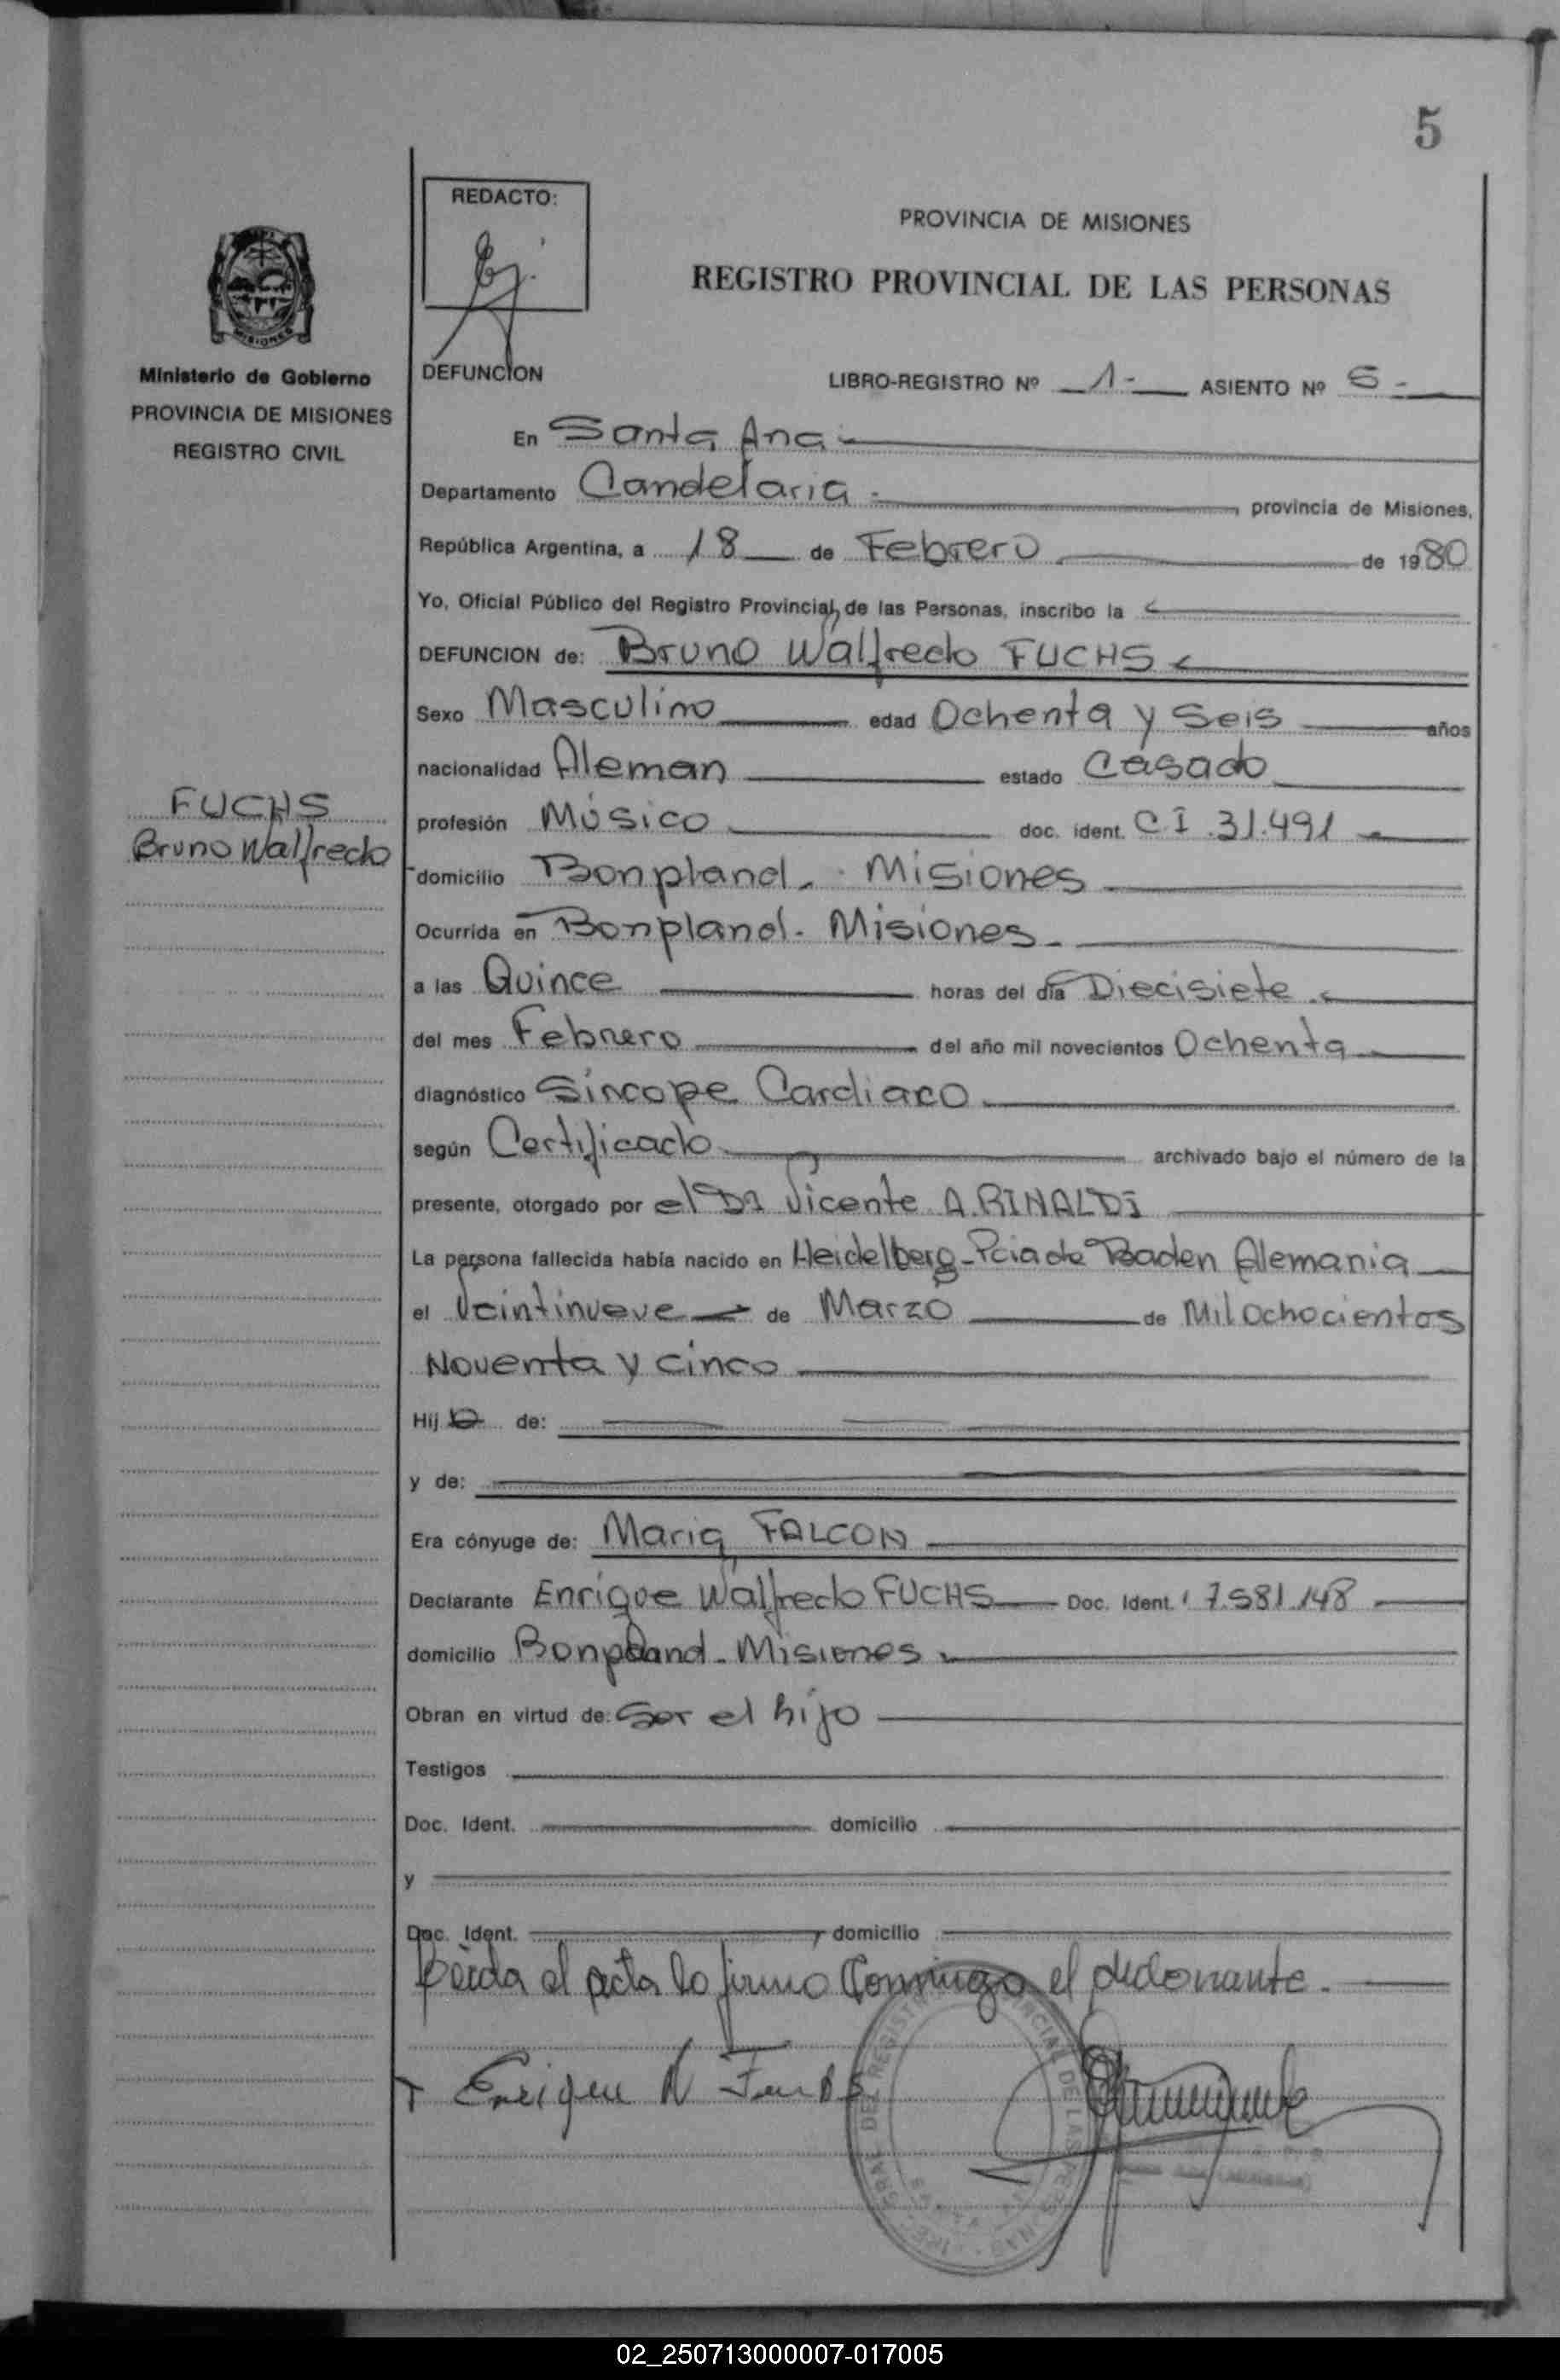 5
REDACTO:
PROVINCIA DE MISIONES
REGISTRO PROVINCIAL DE LAS PERSONAS
MISIONES
Ministerio de Gobierno
PROVINCIA DE MISIONES
REGISTRO CIVIL
DEFUNCION
LIBRO-REGISTRO Nº 1- ASIENTO Nº 5-
En Santa Ana
Departamento Candelaria provincia de Misiones,
República Argentina, a 18 de Febrero de 1980
Yo, Oficial Público del Registro Provincial de las Personas, inscribo la
DEFUNCION de: Bruno Walfredo FUCHS
Sexo Masculino edad Ochenta y Seis años
nacionalidad Aleman estado Casado
FUCHS
Bruno Walfredo
profesión Músico doc. ident. C I 31.491
domicilio Bonpland. Misiones
Ocurrida en Bonpland. Misiones
a las Quince horas del día Diecisiete
del mes Febrero del año mil novecientos Ochenta
diagnóstico Sincope Cardiaco
según Certificado archivado bajo el número de la
presente, otorgado por el Dr Vicente A. RINALDI
La persona fallecida había nacido en Heidelberg-Pcia de Baden Alemania
el Veintinueve de Marzo de Mil Ochocientos
Noventa y cinco
Hijo de:
y de:
Era cónyuge de: Maria FALCON
Declarante Enrique Walfredo FUCHS Doc. Ident. 7.581.148
domicilio Bonpland. Misiones
Obran en virtud de: Ser el hijo
Testigos
Doc. Ident. domicilio
y
Doc. Ident. domicilio
Leida el acta la firmo Conmigo el declarante.
Enrique W Fuchs
02_250713000007-017005